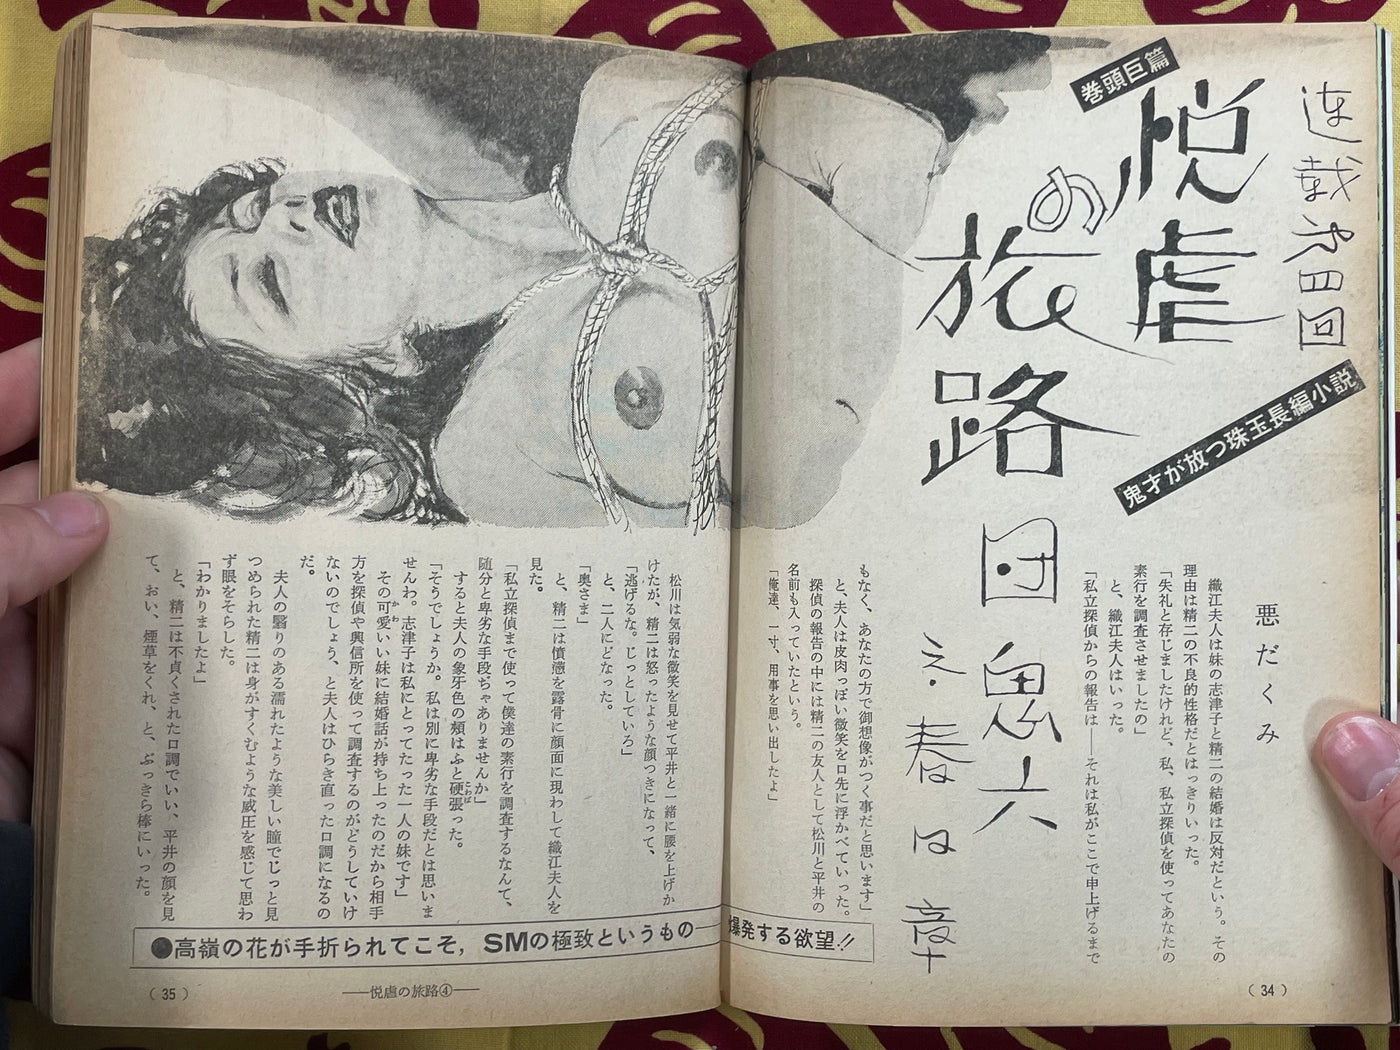 連載第四回
巻頭巨篇
悦虐
の
旅路
鬼才が放つ珠玉長編小説
団鬼六
え・春日章
悪だくみ
織江夫人は妹の志津子と精二の結婚は反対だという。その
理由は精二の不良的性格だとはっきりいった。
「失礼と存じましたけれど、私、私立探偵を使ってあなたの
素行を調査させましたの」
と、織江夫人はいった。
「私立探偵からの報告は――それは私がここで申上げるまで
もなく、あなたの方で御想像がつく事だと思います」
と、夫人は皮肉っぽい微笑を口先に浮かべていった。
探偵の報告の中には精二の友人として松川と平井の
名前も入っていたという。
「俺達、一寸、用事を思い出したよ」
松川は気弱な微笑を見せて平井と一緒に腰を上げか
けたが、精二は怒ったような顔つきになって、
「逃げるな。じっとしていろ」
と、二人にどなった。
「奥さま」
と、精二は憤懣を露骨に顔面に現わして織江夫人を
見た。
「私立探偵まで使って僕達の素行を調査するなんて、
随分と卑劣な手段ぢゃありませんか」
すると夫人の象牙色の頬はふと硬張った。
こわば
「そうでしょうか。私は別に卑劣な手段だとは思いま
せんわ。志津子は私にとってたった一人の妹です」
その可愛いい妹に結婚話が持ち上ったのだから相手
かわ
方を探偵や興信所を使って調査するのがどうしていけ
ないのでしょう、と夫人はひらき直った口調になるの
だ。
夫人の翳りのある濡れたような美しい瞳でじっと見
つめられた精二は身がすくむような威圧を感じて思わ
ず眼をそらした。
「わかりましたよ」
と、精二は不貞くされた口調でいい、平井の顔を見
て、おい、煙草をくれ、と、ぶっきら棒にいった。
●高嶺の花が手折られてこそ，SMの極致というもの―爆発する欲望!!
（35）
――悦虐の旅路④――
（34）